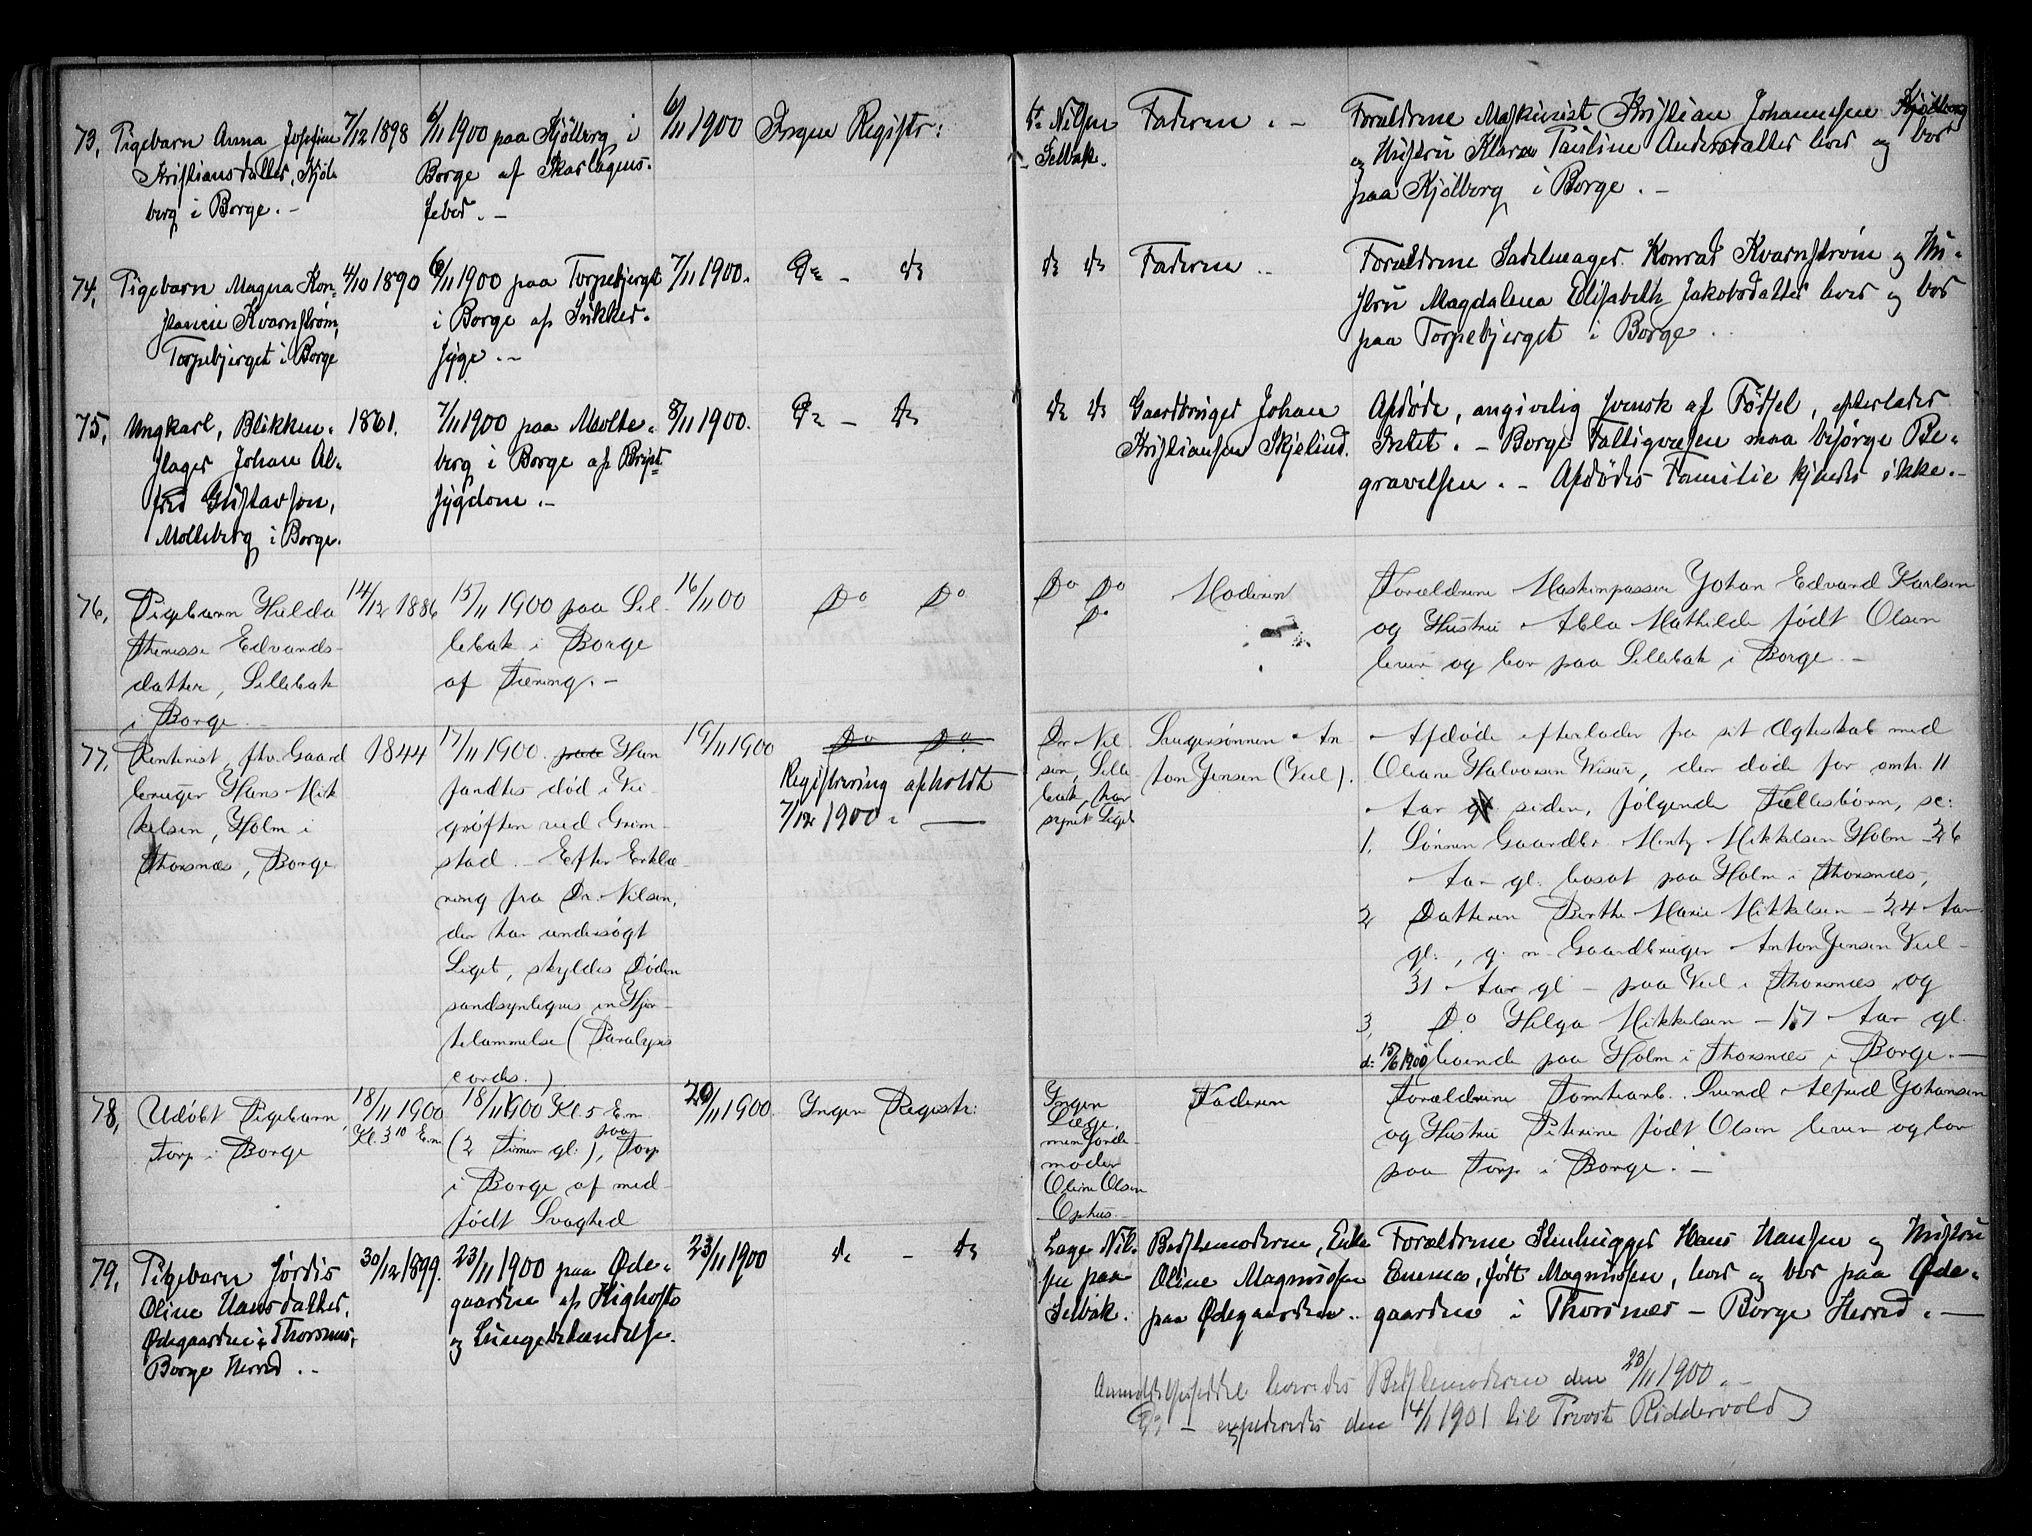 73, Pigebarn Anna Josefine
Kristiansdatter, Kjøl-
berg i Borge. -
7/12 1898
6/11 1900 paa Kjølberg i
Borge af Skarlagens-
feber. -
6/11 1900
Ingen Registr:
Dr. Nilsen
Sellebak.
Faderen. -
Forældrene Maskinist Kristian Johannesen Kjølberg
og Hustru Klara Pauline Andersdatter lever og bor
paa Kjølberg i Borge. -
74, Pigebarn Magna Kon-
stancie Kvarnstrøm,
Torpebjerget i Borge
4/10 1890
6/11 1900 paa Torpebjerget
i Borge af Sukker-
syge. -
7/11 1900.
Do - do
do do
Faderen -
Forældrene Sadelmager Konrad Kvarnstrøm og Hu-
stru Magdalena Elisabeth Jakobsdatter lever og bor
paa Torpebjerget i Borge.
75, Ungkarl, Blikken-
slager Johan Al-
fred Gustavson,
Molteberg i Borge.
1861.
7/11 1900 paa Molte-
berg i Borge af Bryst-
sygdom. -
8/11 1900.
Do - do
do do
Gaardbruger Johan
Kristiansen Skjelind.
Afdøde, angivelig svensk af Fødsel, efterlader
Intet. - Borge Fattigvæsen maa besørge Be-
gravelsen. - Afdødes Familie kjendes ikke. -
76, Pigebarn Hulda
Theresse Edvards-
datter, Sellebak
i Borge. -
14/12 1886
15/11 1900 paa Sel-
lebak i Borge
af Tæring. -
16/11 00
Do Do
Do Do
Do
Moderen
Forældrene Maskinpasser Johan Edvard Karlsen
og Hustru Abla Mathilde født Olsen
lever og bor paa Sellebak i Borge. -
77, Rentenist, fhv. Gaard
bruger Hans Mik
kelsen, Holm i
Thorsnæs, Borge
1844
17/11 1900. paa Han
fandtes død i Vei
grøften ved Grim-
stad. - Efter Erklæ-
ring fra Dr. Nilsen,
der har undersøgt
Liget, skyldes Døden
sandsynligvis en Hjer-
telammelse (Paralysis
cordis.)
19/11 1900
Do Do
Registrering afholdt
7/12 1900. -
Dr. Nil-
sen, Selle
bak, har
synet Liget
Svigersønnen An
ton Jensen (Veel).
Afdøde efterlader fra sit Ægteskab med
Oleane Halvorsen, der døde for omtr. 11
Aar siden, følgende Fællesbørn, se:
1, Sønnen Gaardbr. Mikkelsen Holm - 26
Aar gl. bosat paa Holm i Thorsnæs,
2 Datteren Berthe Marie Mikkelsen - 24 Aar
gl., g. m. Gaardbruger Anton Jensen Veel -
31 Aar gl - paa Veel i Thorsnæs og
3, Do Helga Mikkelsen - 17 Aar gl.
d: 15/6 1900 boende paa Holm i Thorsnæs i Borge. -
78, Udøbt Pigebarn,
Torp i Borge
18/11 1900
Kl. 3 10 Em.
18/11 1900 Kl 5 Em
(2 Timer gl:), paa Torp
i Borge af med-
født Svaghed
20/11 1900.
Ingen Registr:
Ingen
Læge,
men Jorde-
moder
Oline Olsen
Ophus. -
Faderen
Forældrene Tomtearb. Svend Alfred Johansen
og Hustru Peterine født Olsen lever og bor
paa Torp i Borge. -
79, Pigebarn Hjørdis
Oline Hansdatter,
Ødegaarden i Thorsnæs,
Borge Herred. -
30/12 1899.
23/11 1900 paa Øde-
gaarden af Kighoste
og Lungebetændelse.
23/11 1900
do - do
Læge Nil-
sen paa
Selbak.
Bedstemoderen, Enke
Oline Magnussen
paa Ødegaarden. -
Forældrene Stenhugger Hans Hansen og Hustru
Emma, født Magnussen, lever og bor paa Øde-
gaarden i Thorsnæs - Borge Herred. -
Anmeldelsesseddel leveredes Bedstemoderen den 23/11 1900. -
Do - expederedes den 14/1 1901 til Provst Riddervold